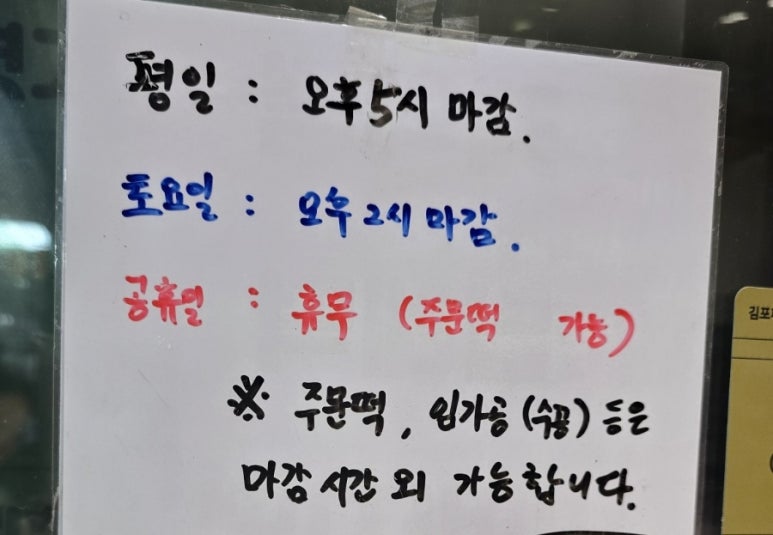 평일 : 오후 5시 마감.
토요일 : 오후 2시 마감.
공휴일 : 휴무 (주문떡 가능)
※ 주문떡, 임가공(수공) 등은
마감시간 외 가능합니다.
김포